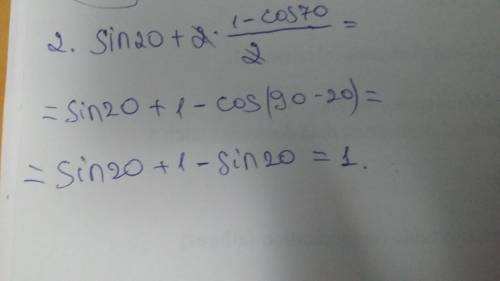 2. sin20 + 2 · (1 - cos70)/2 =
= sin20 + 1 - cos(90 - 20) =
= sin20 + 1 - sin20 = 1.